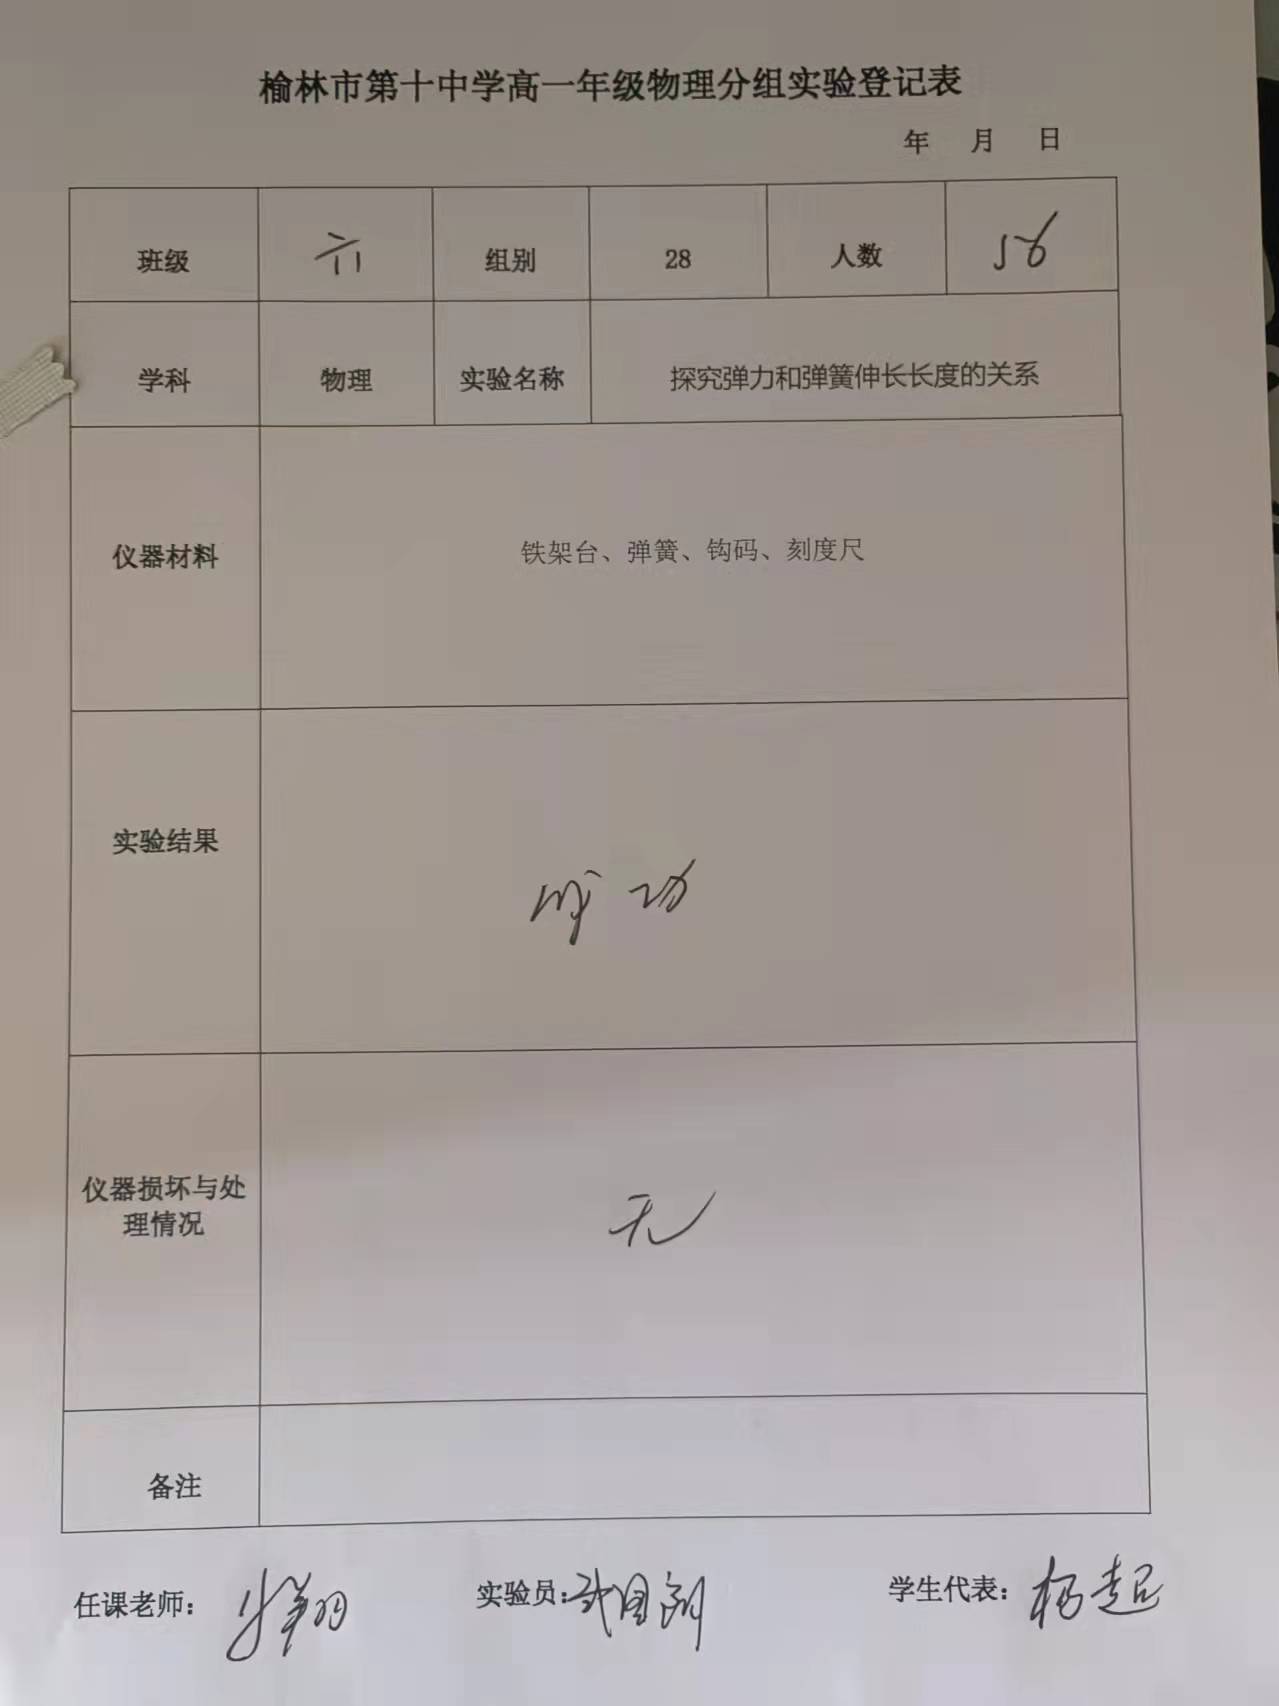 榆林市第十中学高一年级物理分组实验登记表
年 月 日
班级 六 组别 28 人数 56
学科 物理 实验名称 探究弹力和弹簧伸长长度的关系
仪器材料 铁架台、弹簧、钩码、刻度尺
实验结果 成功
仪器损坏与处
理情况
无
备注
任课老师： 实验员： 学生代表：杨起